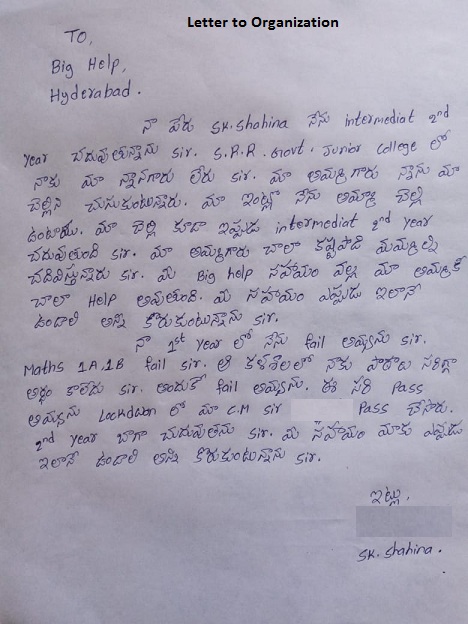 Letter to Organization
TO,
Big Help,
Hyderabad.
నా పేరు SK.Shahina నేను intermediat 2nd
year చదువుతున్నాను sir. S.R.R. Govt. Junior College లో
నాకు మా నాన్నగారు లేరు sir. మా అమ్మగారు నన్ను మా
చెల్లిని చుసుకుంటున్నారు. మా ఇంట్లో నేను అమ్మా చెల్లి
ఉంటాము. మా చెల్లి కూడా ఇప్పుడు intermediat 2nd year
చదువుతుంది sir. మా అమ్మగారు చాలా కష్టపడి మమ్మల్ని
చదివిస్తున్నారు sir. మీ Big help సహాయం వల్ల మా అమ్మకి
చాలా Help అవుతుంది. మీ సహాయం ఎప్పుడు ఇలానే
ఉండాలి అన్ని కొరుకుంటున్నాను sir.
నా 1st year లో నేను fail అయ్యాను sir.
Maths 1A.1B fail sir. ఆ కళశాలలో నాకు పాఠాలు సరిగ్గా
అర్థం కాలేదు sir. అందుకే fail అయ్యాను. ఈ సరి Pass
అయ్యాను Lockdwon లో మా C.M sir Pass చేసారు.
2nd year బాగా చదువుతాను sir. మీ సహాయం మాకు ఎప్పుడు
ఇలానే ఉండాలి అన్ని కొరుకుంటున్నాను sir.
ఇట్లు,
SK. Shahina.